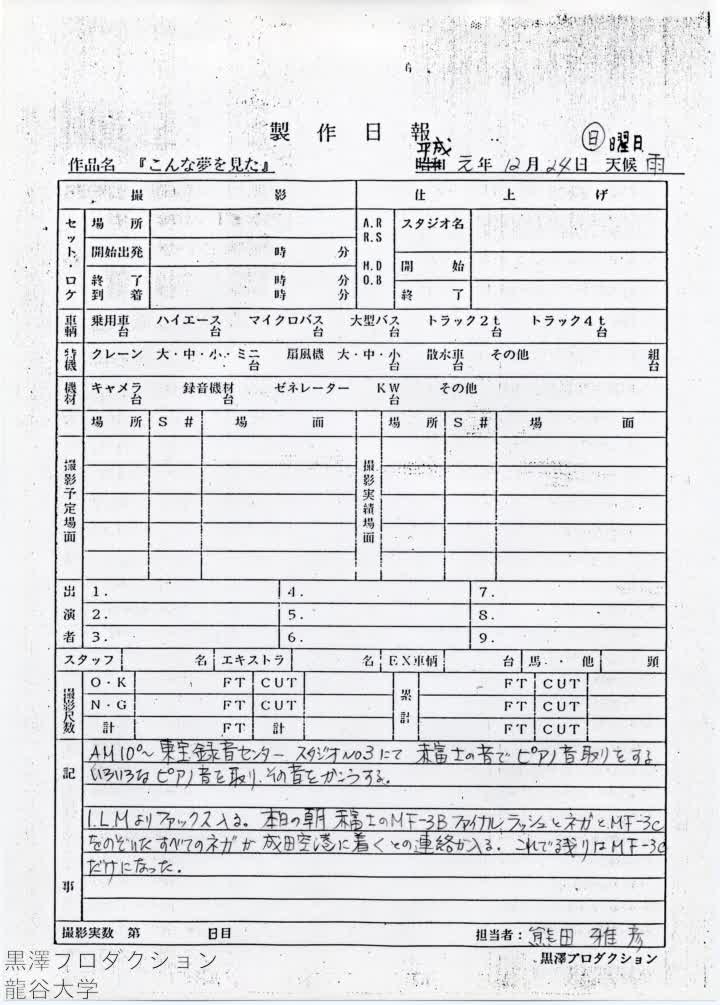 製作日報
作品名 『こんな夢を見た』 昭和 平成 元年 12月 24日 日曜日 天候 雨
撮 影 仕 上 げ
セット・ロケ 場 所 A.R R.S スタジオ名
開始出発 時 分 M.D O.B 開 始
終 了 時 分 終 了
到 着 時 分
車輌 乗用車 台 ハイエース 台 マイクロバス 台 大型バス 台 トラック2t 台 トラック4t 台
特機 クレーン 大・中・小・ミニ 台 扇風機 大・中・小 台 散水車 台 その他 組 台
機材 キャメラ 台 録音機材 台 ゼネレーター KW 台 その他
場 所 S # 場 面 場 所 S # 場 面
撮影予定場面 撮影実績場面
出演者 1. 4. 7.
2. 5. 8.
3. 6. 9.
スタッフ 名 エキストラ 名 EX車輌 台 馬・他 頭
撮影尺数 O・K FT CUT 累計 FT CUT
N・G FT CUT FT CUT
計 FT 計 FT CUT
記事
AM10°~ 東宝録音センター スタジオNo3にて 赤富士の音で ピアノ音取りをする
いろいろなピアノ音を取り、その音をかこうする。
I.L.Mよりファックス入る。 本日の朝 赤富士のMF-3B ファイナル,ラッシュとネガとMF-3C
をのぞいたすべてのネガが 成田空港に着くとの連絡が入る。 これで残りはMF-3C
だけになった.
撮影実数 第 日目 担当者: 熊田 雅彦
黒澤プロダクション
黒澤プロダクション
龍谷大学